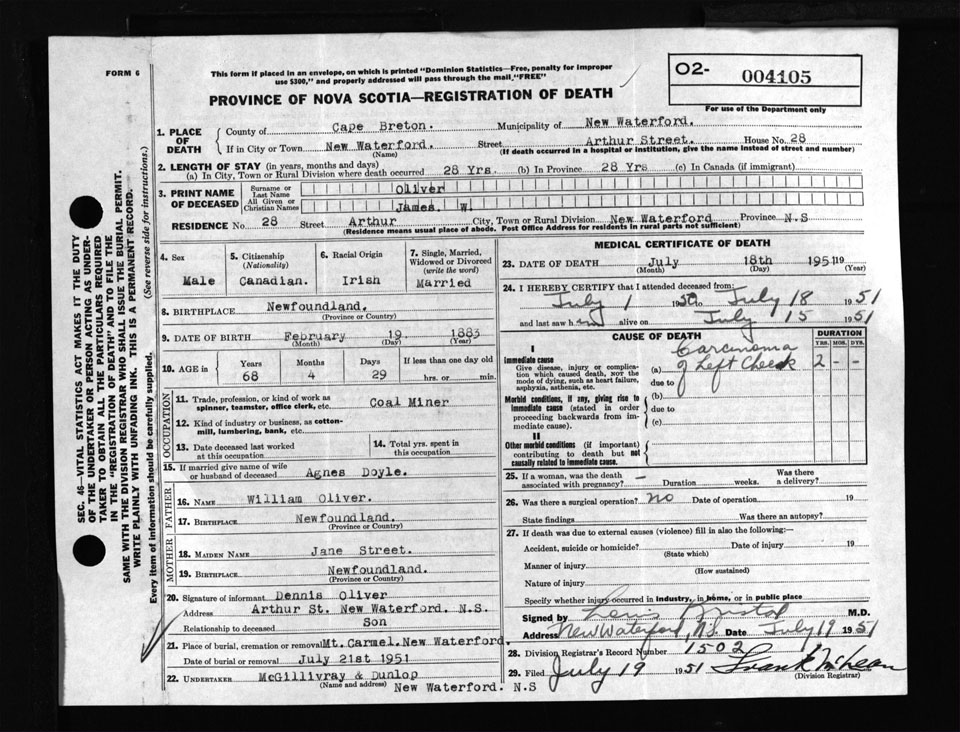 FORM 6
This form if placed in an envelope, on which is printed "Dominion Statistics—Free, penalty for improper
use $300," and properly addressed will pass through the mail, "FREE"
PROVINCE OF NOVA SCOTIA—REGISTRATION OF DEATH
O2- 004105
For use of the Department only
1. PLACE OF DEATH
County of Cape Breton. Municipality of New Waterford.
If in City or Town New Waterford. Street Arthur Street. House No. 28
(Name) (If death occurred in a hospital or institution, give the name instead of street and number)
2. LENGTH OF STAY (in years, months and days)
(a) In City, Town or Rural Division where death occurred 28 Yrs. (b) In Province 28 Yrs (c) In Canada (if immigrant)
3. PRINT NAME OF DECEASED
Surname or Last Name Oliver
All Given or Christian Names James W.
RESIDENCE No. 28 Street Arthur City, Town or Rural Division New Waterford Province N.S
(Residence means usual place of abode. Post Office Address for residents in rural parts not sufficient)
4. Sex Male
5. Citizenship (Nationality) Canadian.
6. Racial Origin Irish
7. Single, Married, Widowed or Divorced (write the word) Married
8. BIRTHPLACE Newfoundland.
(Province or Country)
9. DATE OF BIRTH February 19 1883
(Month) (Day) (Year)
10. AGE in Years 68 Months 4 Days 29 If less than one day old hrs. or min.
OCCUPATION
11. Trade, profession, or kind of work as spinner, teamster, office clerk, etc. Coal Miner
12. Kind of industry or business, as cotton-mill, lumbering, bank, etc.
13. Date deceased last worked at this occupation
14. Total yrs. spent in this occupation
15. If married give name of wife or husband of deceased Agnes Doyle.
FATHER
16. NAME William Oliver.
17. BIRTHPLACE Newfoundland.
(Province or Country)
MOTHER
18. MAIDEN NAME Jane Street.
19. BIRTHPLACE Newfoundland.
(Province or Country)
20. Signature of informant Dennis Oliver
Address Arthur St. New Waterford. N.S.
Relationship to deceased Son
21. Place of burial, cremation or removal Mt. Carmel. New Waterford.
Date of burial or removal July 21st 1951
22. UNDERTAKER McGillivray & Dunlop
(Name and address) New Waterford. N.S
MEDICAL CERTIFICATE OF DEATH
23. DATE OF DEATH July 18th 1951 19
(Month) (Day) (Year)
24. I HEREBY CERTIFY that I attended deceased from:
July 1 1950 to July 18 1951
and last saw him alive on July 15 1951
CAUSE OF DEATH
DURATION
YRS. MOS. DYS.
I
Immediate cause
Give disease, injury or complication which caused death, NOT the mode of dying, such as heart failure, asphyxia, asthenia, etc.
(a) Carcinoma of Left Cheek 2 - -
due to
Morbid conditions, if any, giving rise to immediate cause (stated in order proceeding backwards from immediate cause).
(b)
due to
(c)
II
Other morbid conditions (if important) contributing to death but not causally related to immediate cause.
25. If a woman, was the death associated with pregnancy? — Duration weeks. Was there a delivery?
26. Was there a surgical operation? no Date of operation 19
State findings Was there an autopsy?
27. If death was due to external causes (violence) fill in also the following:—
Accident, suicide or homicide? Date of injury 19
(State which)
Manner of injury
(How sustained)
Nature of injury
Specify whether injury occurred in industry, in home, or in public place
Signed by Lewis Bristol M.D.
Address New Waterford, N.S. Date July 19 1951
28. Division Registrar's Record Number 1502
29. Filed July 19 1951 Frank McLean
(Division Registrar)
SEC. 46—VITAL STATISTICS ACT MAKES IT THE DUTY
OF THE UNDERTAKER OR PERSON ACTING AS UNDER-
TAKER TO OBTAIN ALL THE PARTICULARS REQUIRED
IN THE "REGISTRATION OF DEATH" AND TO FILE THE
SAME WITH THE DIVISION REGISTRAR WHO SHALL ISSUE THE BURIAL PERMIT.
WRITE PLAINLY WITH UNFADING INK. THIS IS A PERMANENT RECORD.
Every item of information should be carefully supplied. (See reverse side for instructions.)